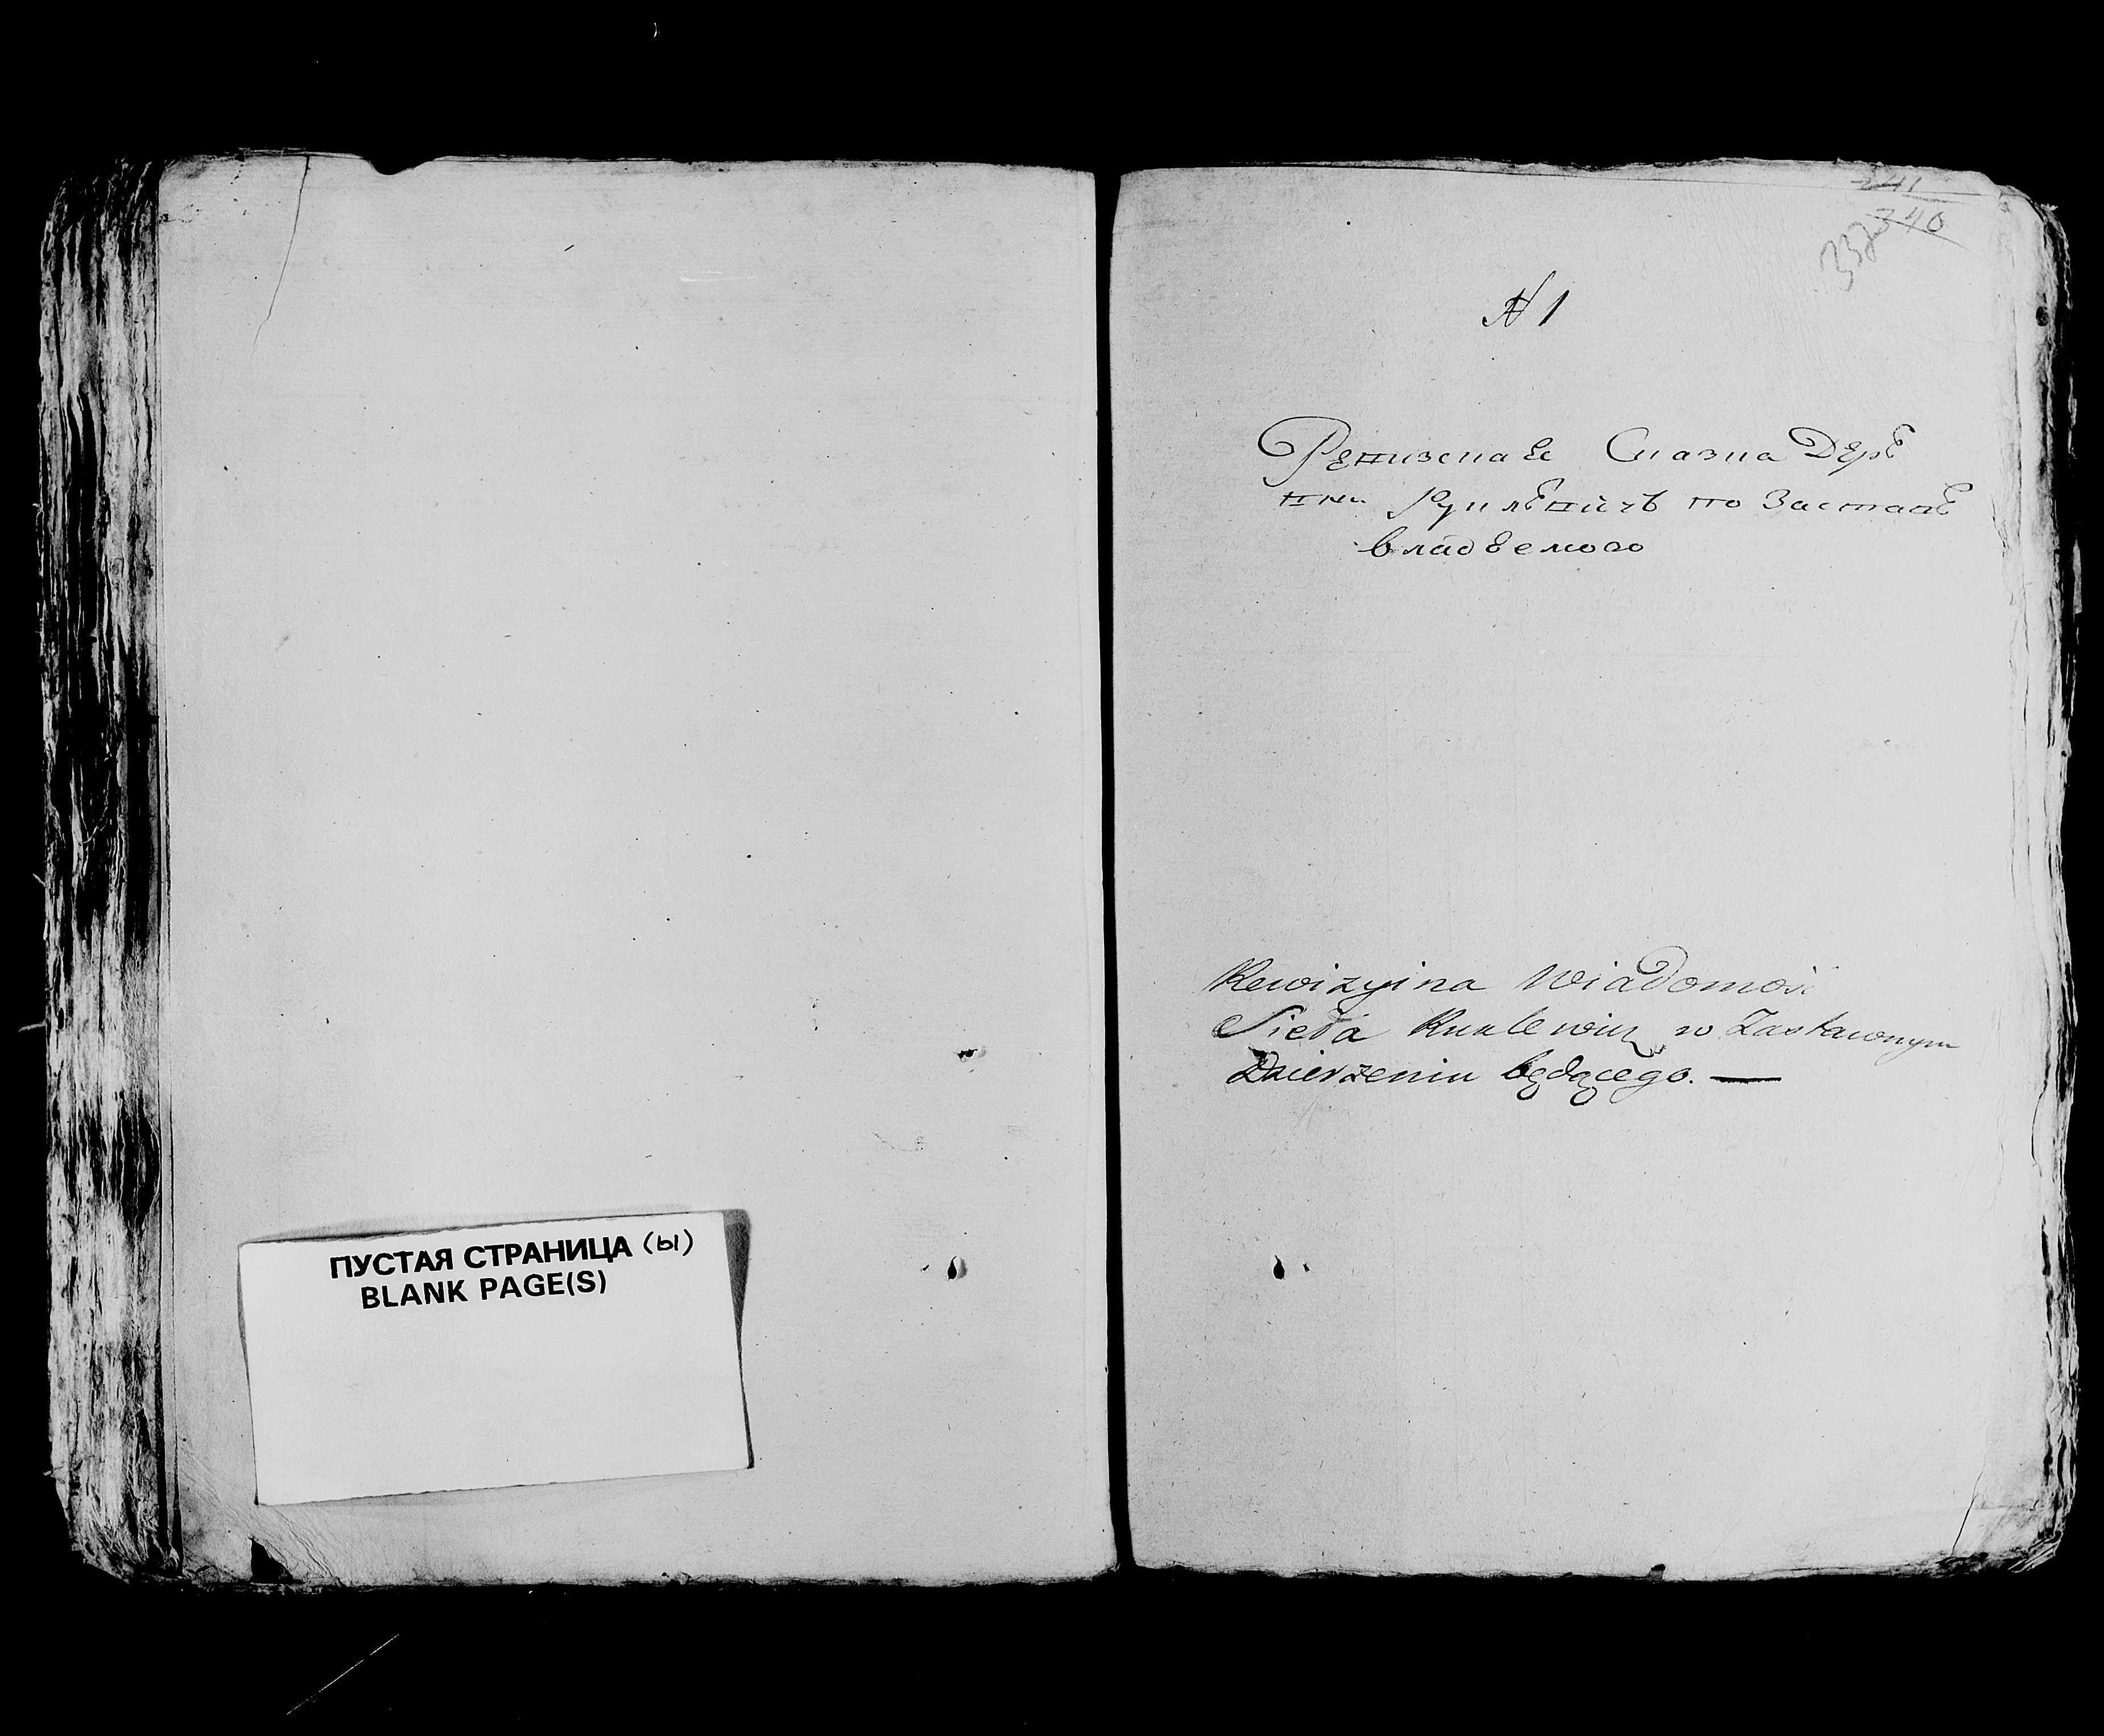 ПУСТАЯ СТРАНИЦА (ы)
BLANK PAGE(S)
241
340
337
N 1
Ревизская Сказка Дерѣ
вни Кулѣвичъ по Заставѣ
владѣемого
Rewizyina Wiadomość
Sioła Kuklewicz w Zastawnym
Dzierzeniu będącego. —